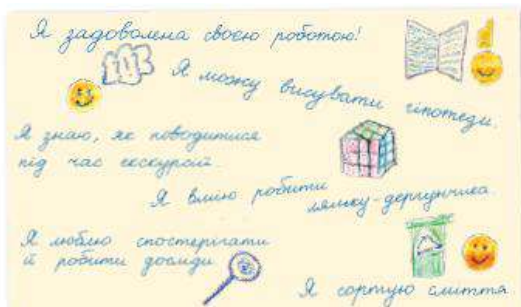 Я задоволена своєю роботою!
Я можу висувати гіпотези.
Я знаю, як поводитися
під час екскурсій.
Я вмію робити
ляльку-дергунчика.
Я люблю спостерігати
й робити досліди.
Я сортую сміття.